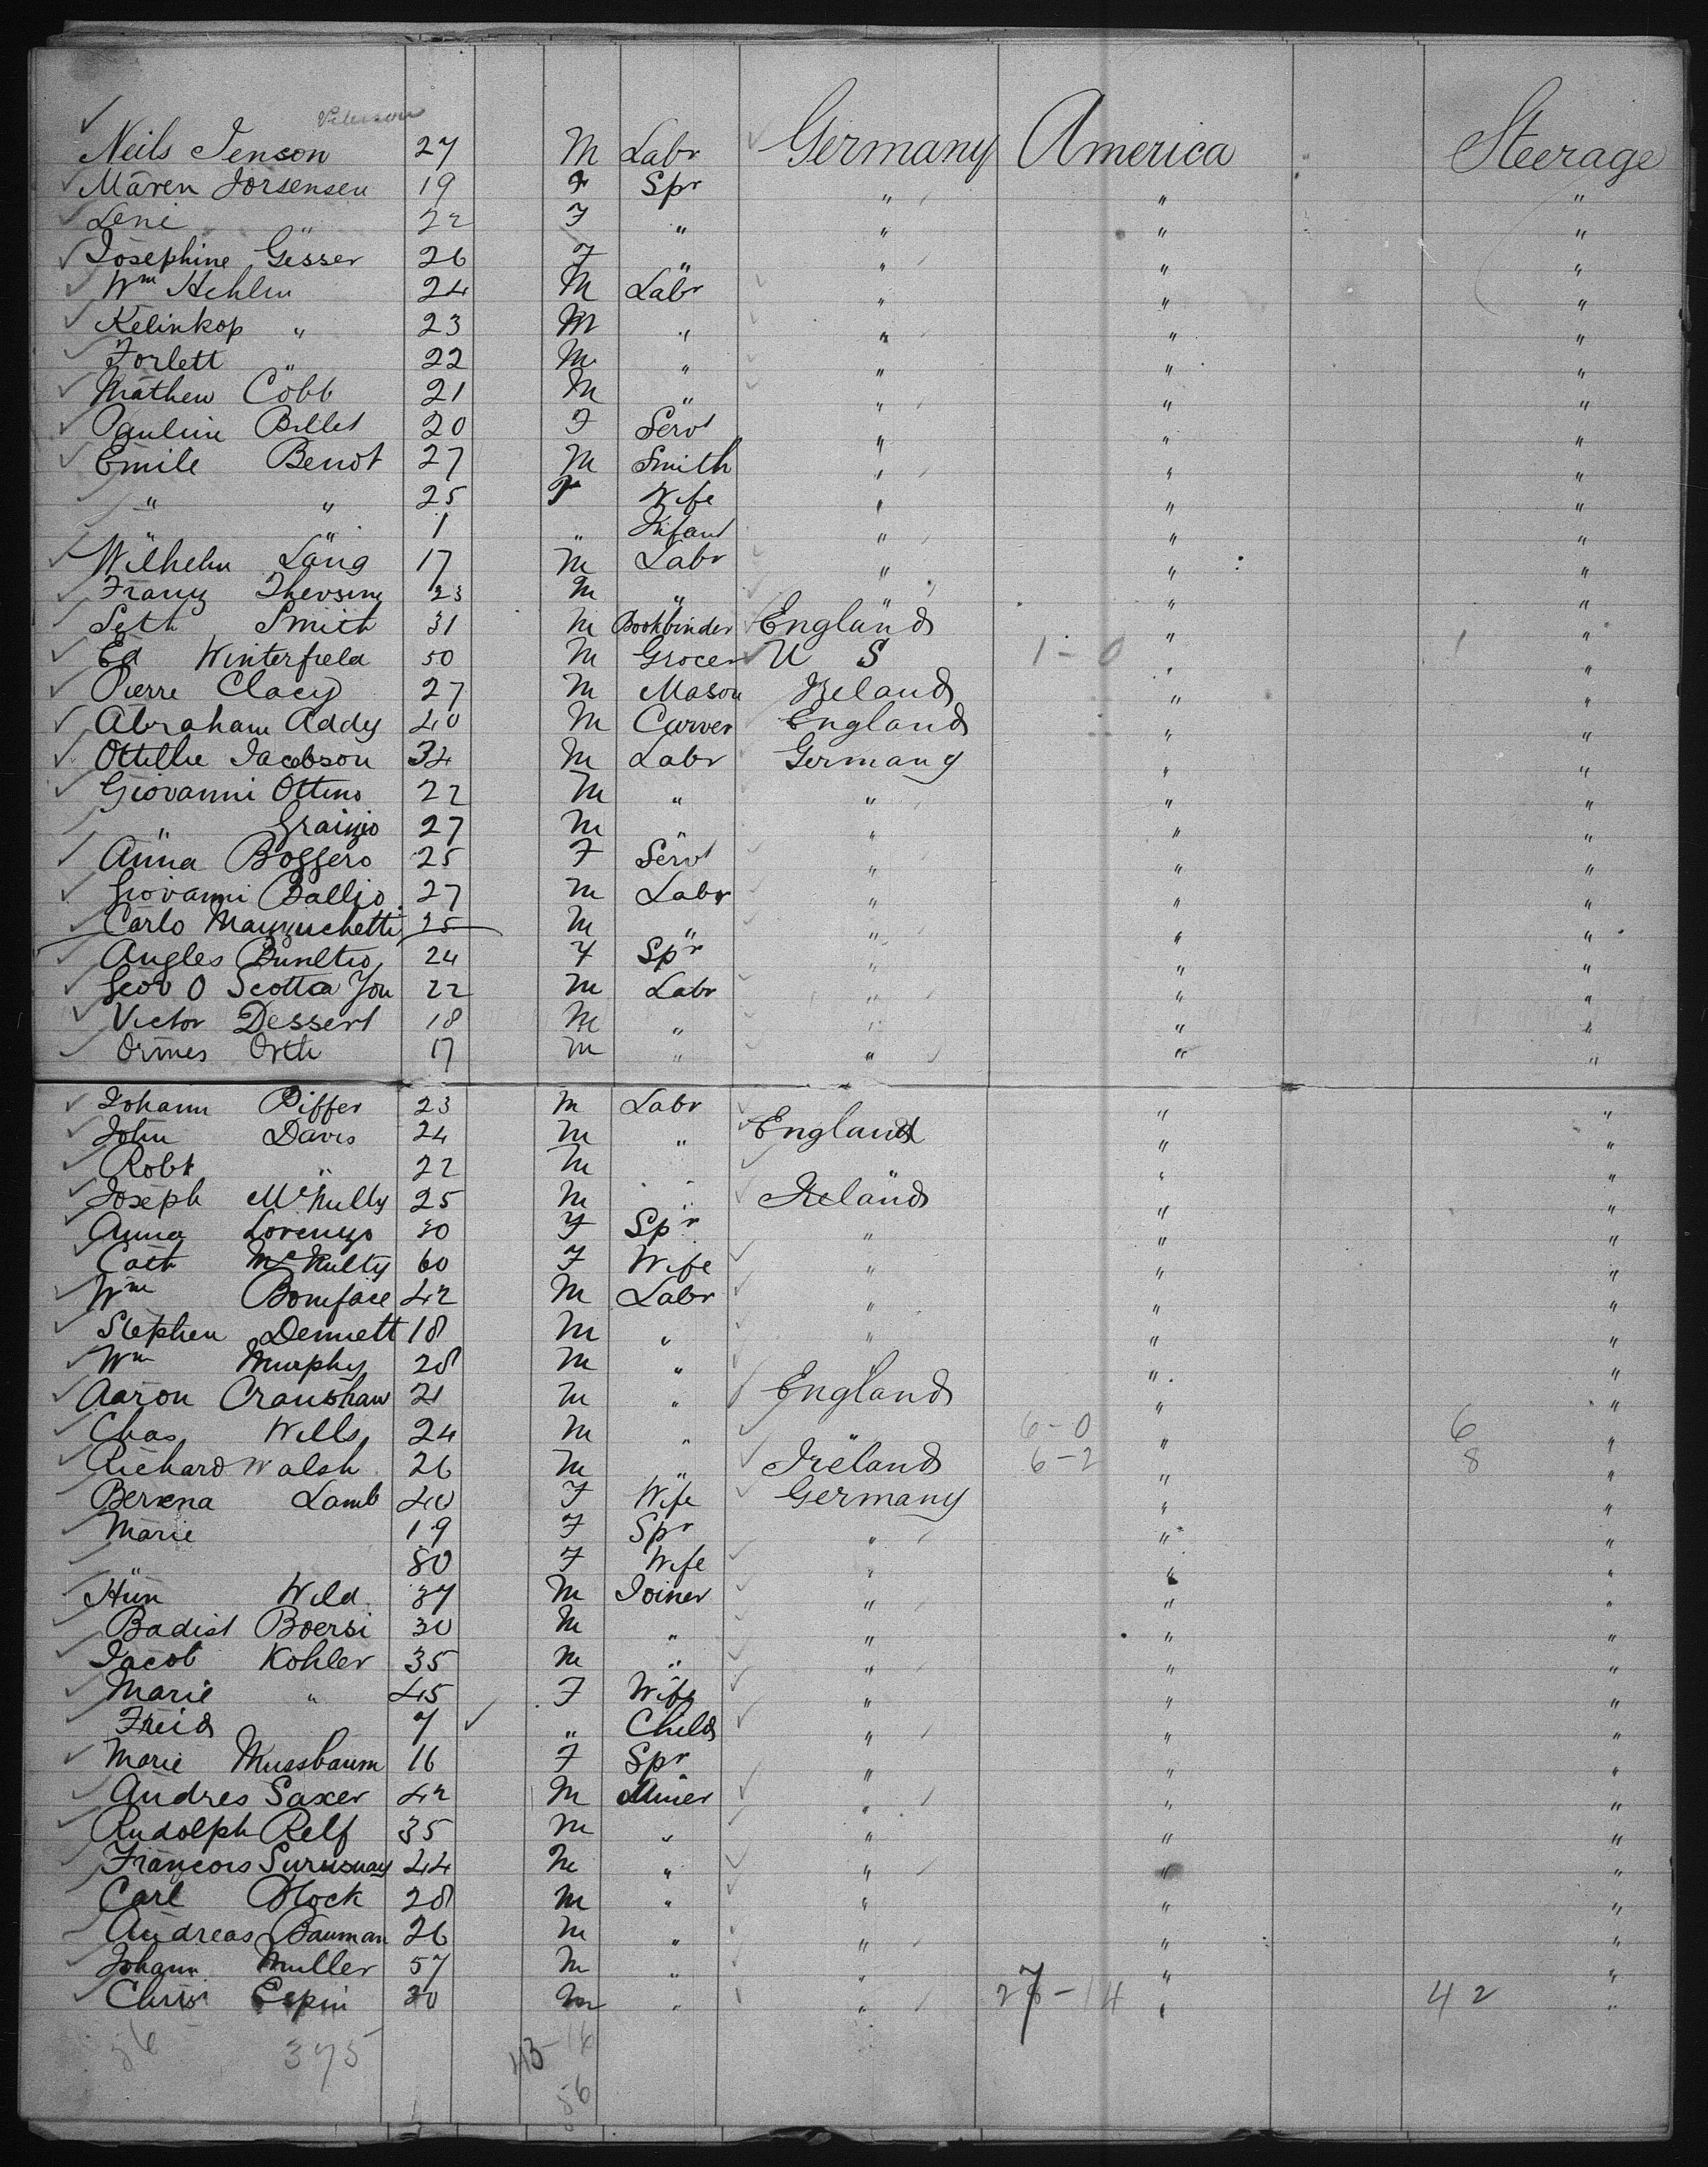 Neils Jenson 27 M Labr Germany America Steerage
Maren Jorsensen 19 F Spr " " "
Leni " 22 F " " " "
Josephine Gesser 26 F " " " "
Wm Hehlen 24 M Labr " " "
Kelinkop " 23 M " " " "
Forlett " 22 M " " " "
Mathew Cobb 21 M " " " "
Pauline Billet 20 F Servt " " "
Emile Benot 27 M Smith " " "
" " 25 F Wife " " "
" " 1 " Infant " " "
Wilhelm Lang 17 M Labr " " "
Franz 23 M " " " "
Seth Smith 31 M Bookbinder England " "
Ed Winterfield 50 M Grocer U S 1-0 " 1 "
Pierre Clacy 27 M Mason Ireland " "
Abraham Addy 40 M Carver England " "
Ottillie Jacobson 34 M Labr Germany " "
Giovanni Ottino 22 M " " " "
" Graizio 27 M " " " "
Anna Boggero 25 F Servt " " "
Giovanni Ballio 27 M Labr " " "
Carlo Mazzuchetti 25 M " " " "
Angles 24 F Spr " " "
Geov O Scotta Jou 22 M Labr " " "
Victor Dessert 18 M " " " "
Ormes Orth 17 M " " " "
Johann Piffer 23 M Labr " "
John Davis 24 M " England " "
Robt " 22 M " "
Joseph McNulty 25 M " Ireland " "
Anna Lorenzo 30 F Spr " " "
Cath McNulty 60 F Wife " " "
Wm Boniface 42 M Labr " " "
Stephen Dennett 18 M " " " "
Wm Murphy 28 M " " "
Aaron Cranshaw 21 M " England " "
Chas Wells 24 M " 6-0 " 6 "
Richard Walsh 26 M " Ireland 6-2 " 8 "
Berena Lamb 40 F Wife Germany " "
Marie 19 F Spr " " "
" 80 F Wife " " "
Hün Wild 37 M Joiner " " "
Badist Boersi 30 M " " " "
Jacob Kohler 35 M " " " "
Marie " 45 F Wife " " "
Freid 7 " Child " " "
Marie Mussbaum 16 F Spr " " "
Andres Saxer 42 M Miner " " "
Rudolph Relf 35 M " " " "
Francois 44 M " " " "
Carl Block 28 M " " " "
Andreas Bauman 26 M " " " "
Johann Muller 57 M " " " "
30 M " " 27-14 " 42 "
56 375 43 16
56